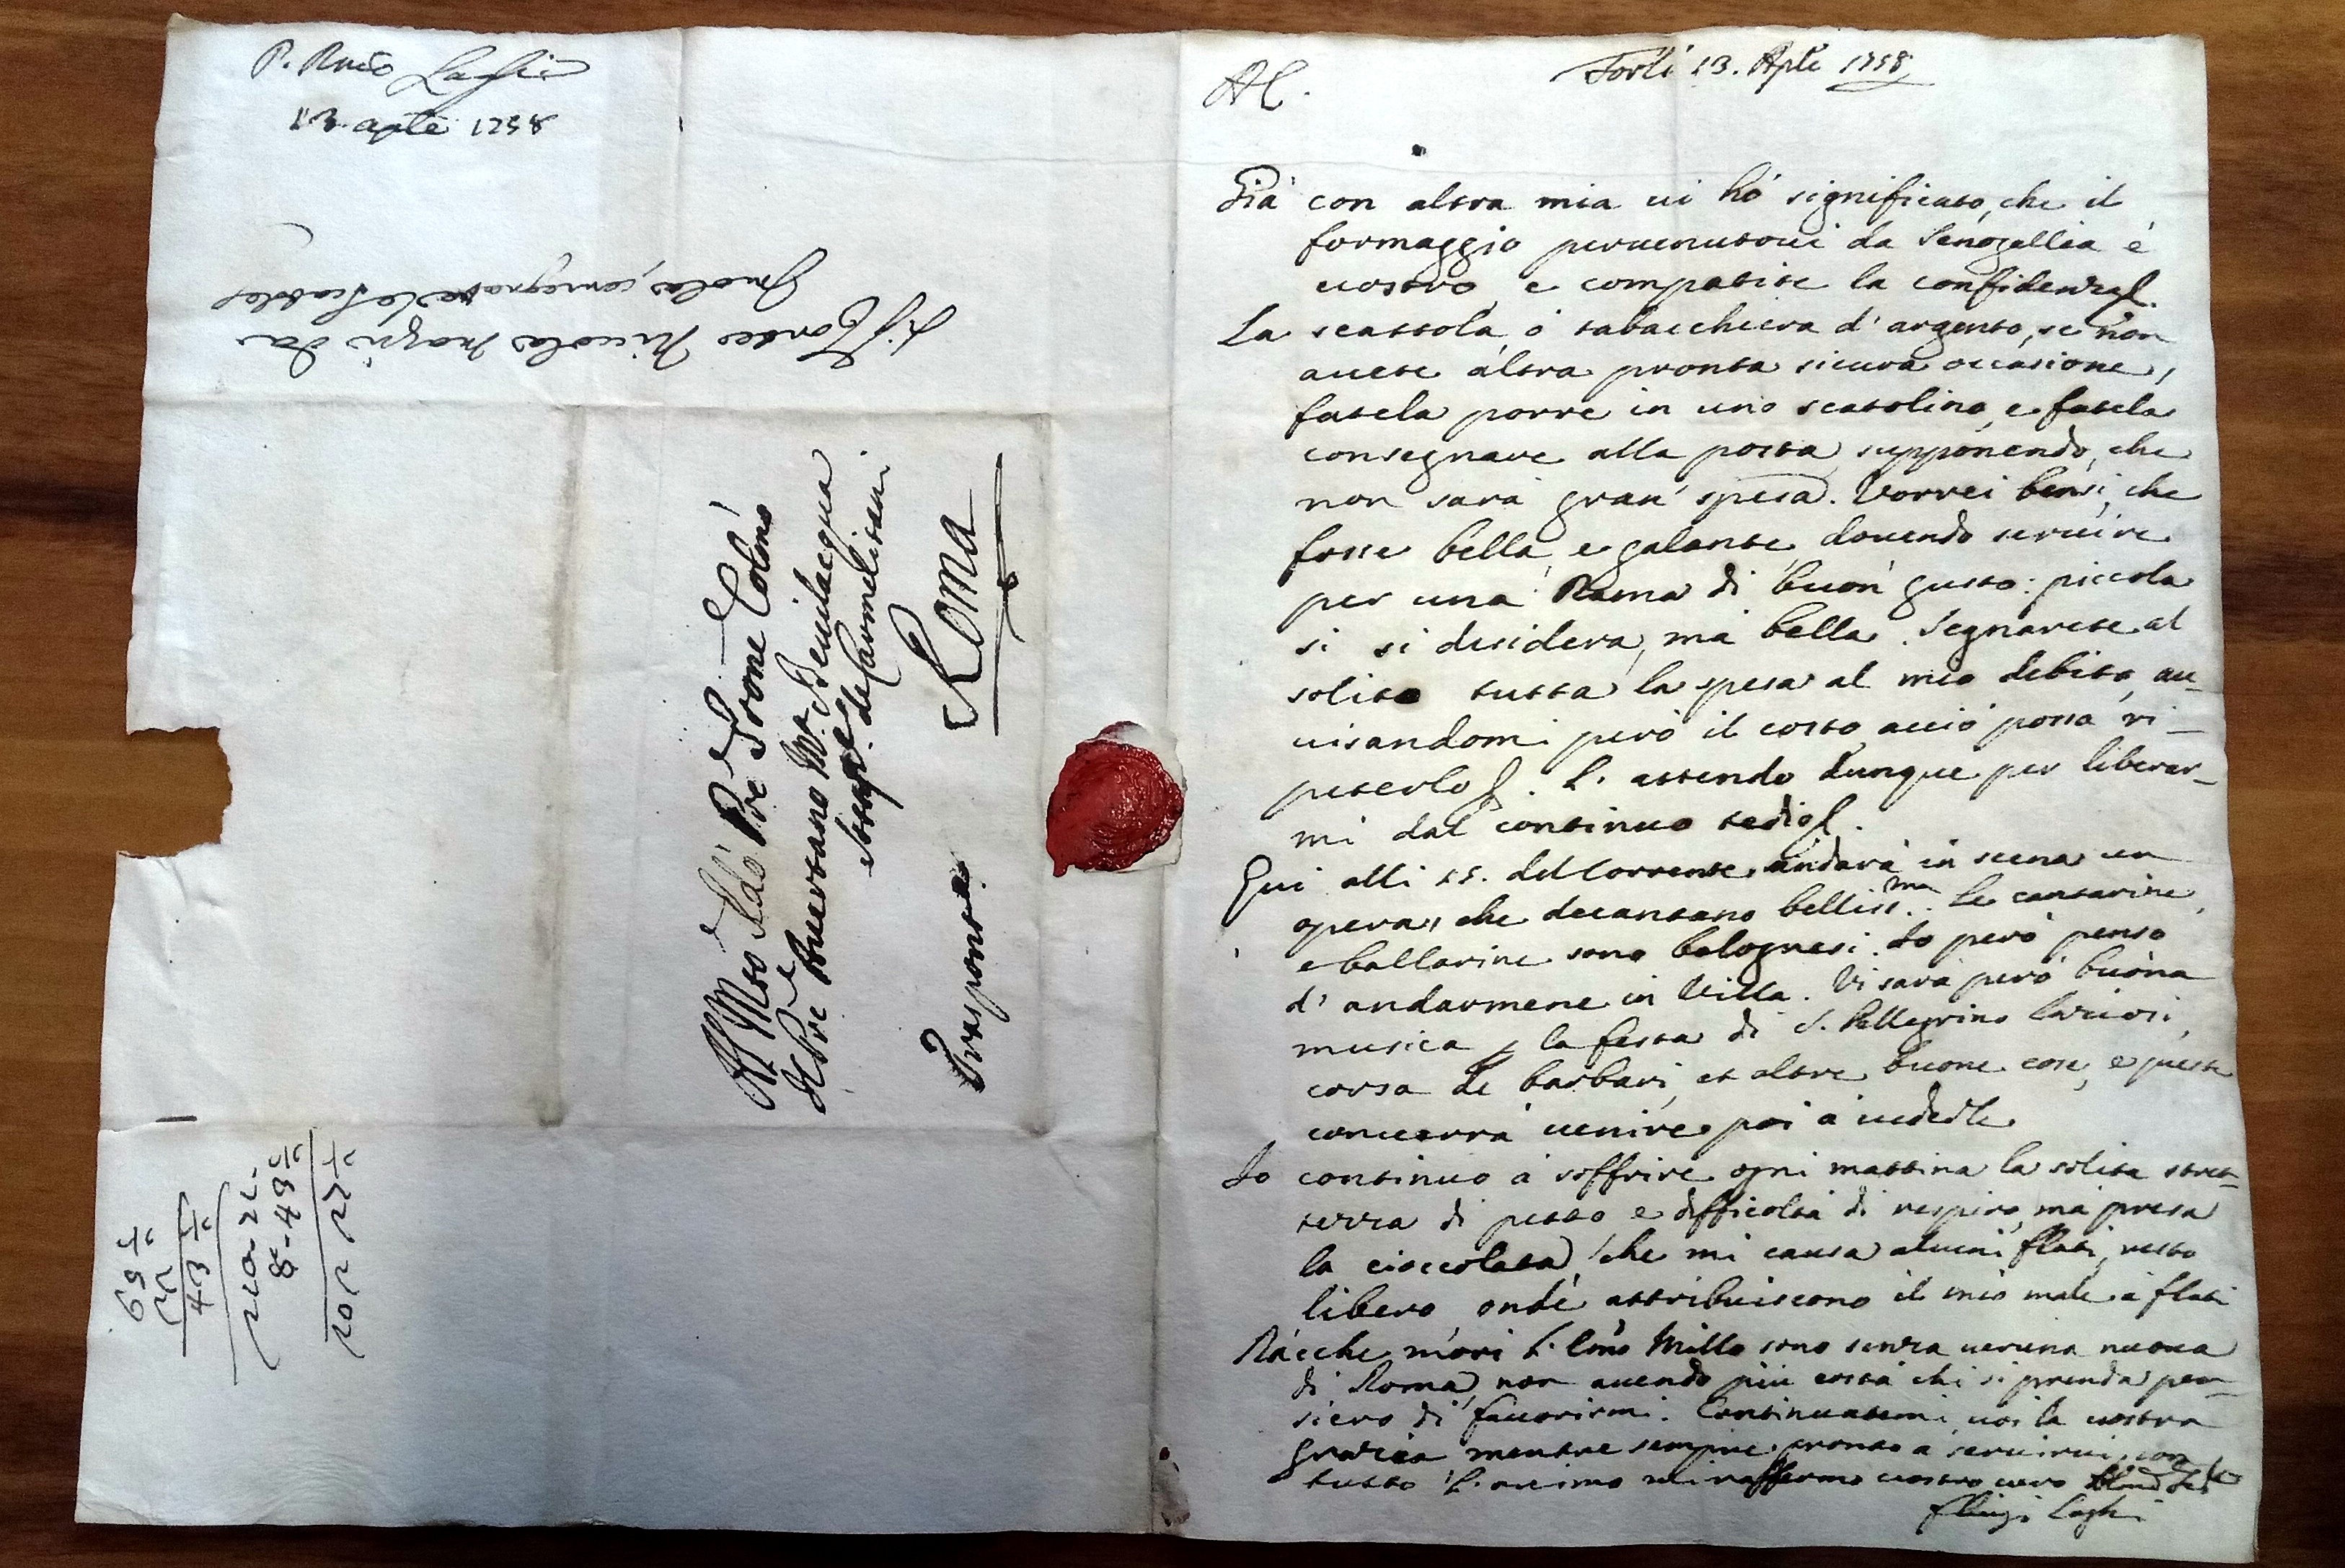 P. Rmõ Laghi
13 aple 1758
Sig. Conte Niccola Mazzi da
Imola, consegnate le scatole
Al Mto Rdo Pre Prone Colmo
Il Pre Provano Mro Bevilacqua
de Carmelitani
Roma
Prasponse
69
43
8-49
AC.
Forlì 13. Aple 1758
Già con altra mia vi hò significato, che il
formaggio pervenutovi da Senogallia è
vostro, e compatite la confidenza.
La scattola, ò tabacchiera d'argento, se non
avete altra pronta sicura occasione,
fatela porre in uno scatolino, e fatela
consegnare alla posta, supponendo, che
non sarà gran' spesa. Vorrei bensì, che
fosse bella, e galante, dovendo servire
per una Dama di buon gusto: piccola
si si desidera, mà bella. Segnarete al
solito tutta la spesa al mio debito, av-
visandomi però il costo, acciò possa ri-
peterlo. L'attendo dunque per liberar-
mi dal continuo tedio.
Qui alli 15. del Corrente, andarà in scena un
opera, che decantano belliss.ma Le cantarine,
e ballarine sono bolognesi. Io però penso
d'andarmene in Villa. Vi sarà però buona
musica p la festa di S. Pellegrino Laziosi,
corsa de barbari, et altre buone cose, e queste
converrà venire poi à vederle
Io continuo à soffrire ogni mattina la solita stret-
tezza di petto, e difficoltà di respiro, mà presa
la cioccolata, che mi causa alcuni flati, resto
libero, onde attribuiscono il mio male à flati
Dacche morì l'Emo Millo sono senza veruna nuova
di Roma, non avendo più costà chi si prenda pen-
siero di favorirmi. Continuatemi voi la vostra
grazia mentre sempre pronto à servirvi, con
tutto l'animo mi raffermo vostro vero
fLuigi Laghi